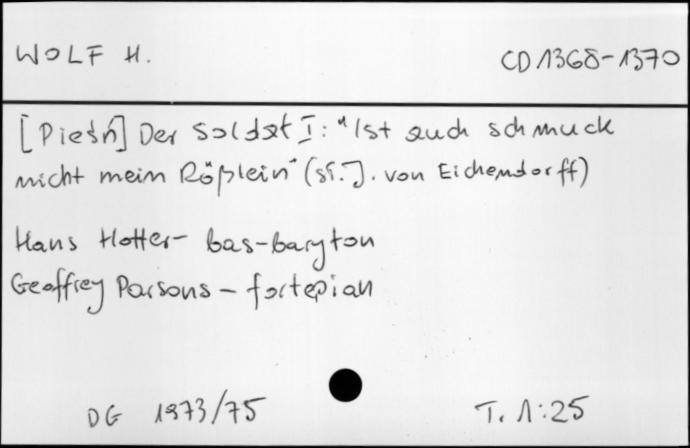 WOLF H.
CD 1368-1370
[Pieśń] Der Soldat I: "Ist auch schmuck
nicht mein Rößlein" (sł. J. von Eichendorff)
Hans Hotter - bas-baryton
Geoffrey Parsons - fortepian
DG 1973/75
T. 1:25